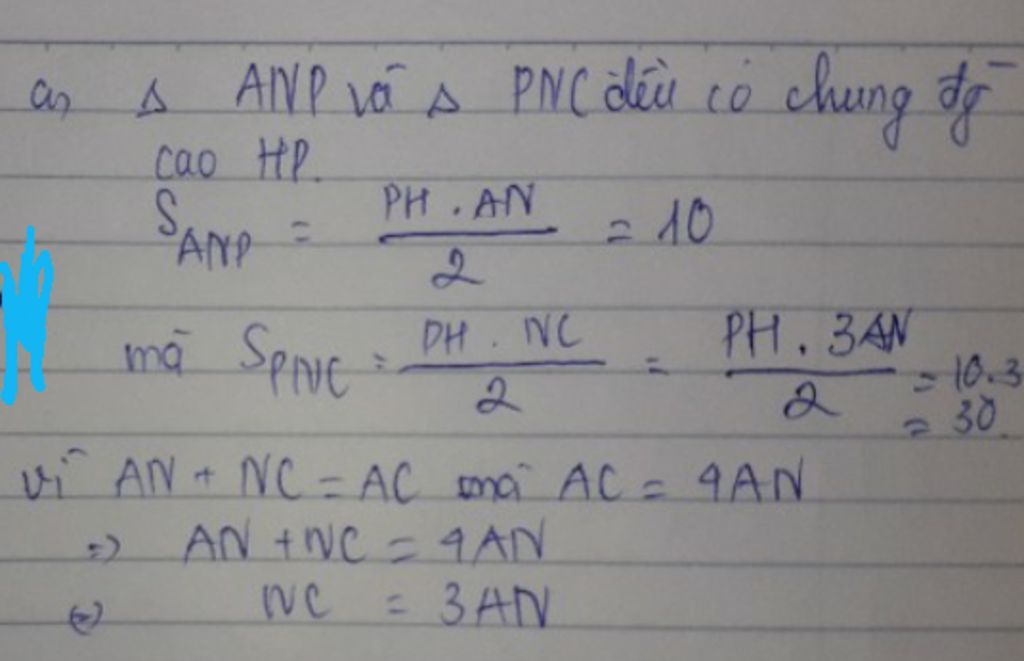 a, Δ ANP và Δ PNC đều có chung đg
cao HP.
S_ANP = PH . AN / 2 = 10
mà S_PNC = PH . NC / 2 = PH . 3AN / 2 = 10.3
= 30.
vì AN + NC = AC mà AC = 4AN
=> AN + NC = 4AN
<=> NC = 3AN